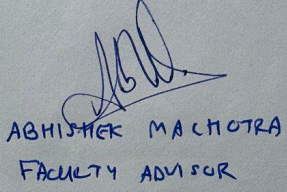 ABHISHEK MACHOTRA
FACULTY ADVISOR